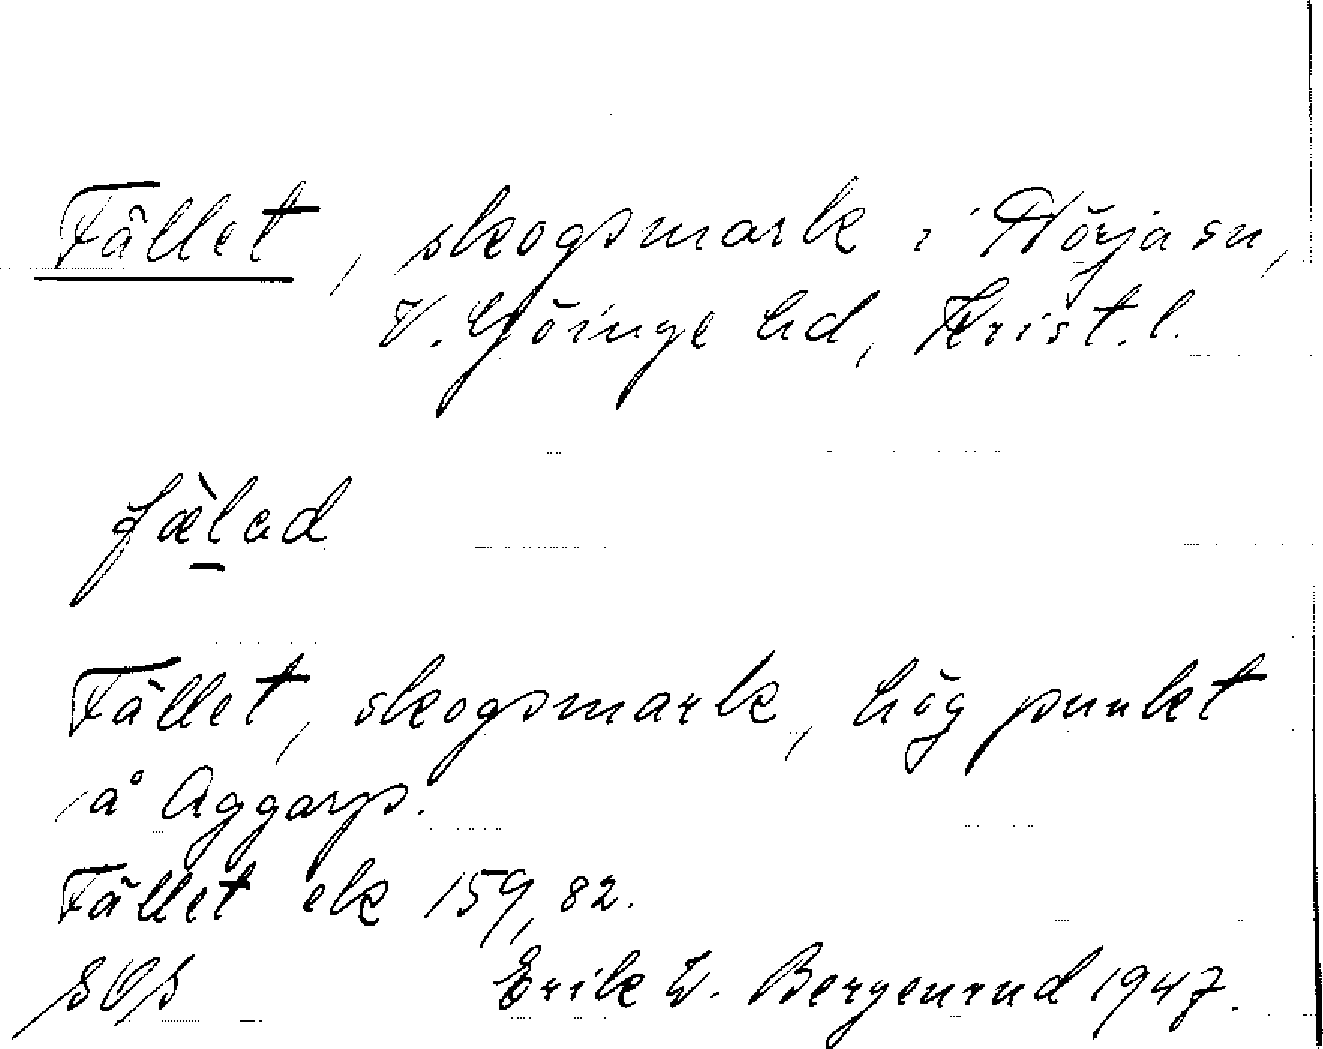 Fället, skogsmark i Nörja sn,
V. Göinge hd, Krist. l.
fæ̀lad
Fället, skogsmark, hög punkt
å Aggarp.
Fället ek 159, 82.
Erik W. Bergenrud 1947.